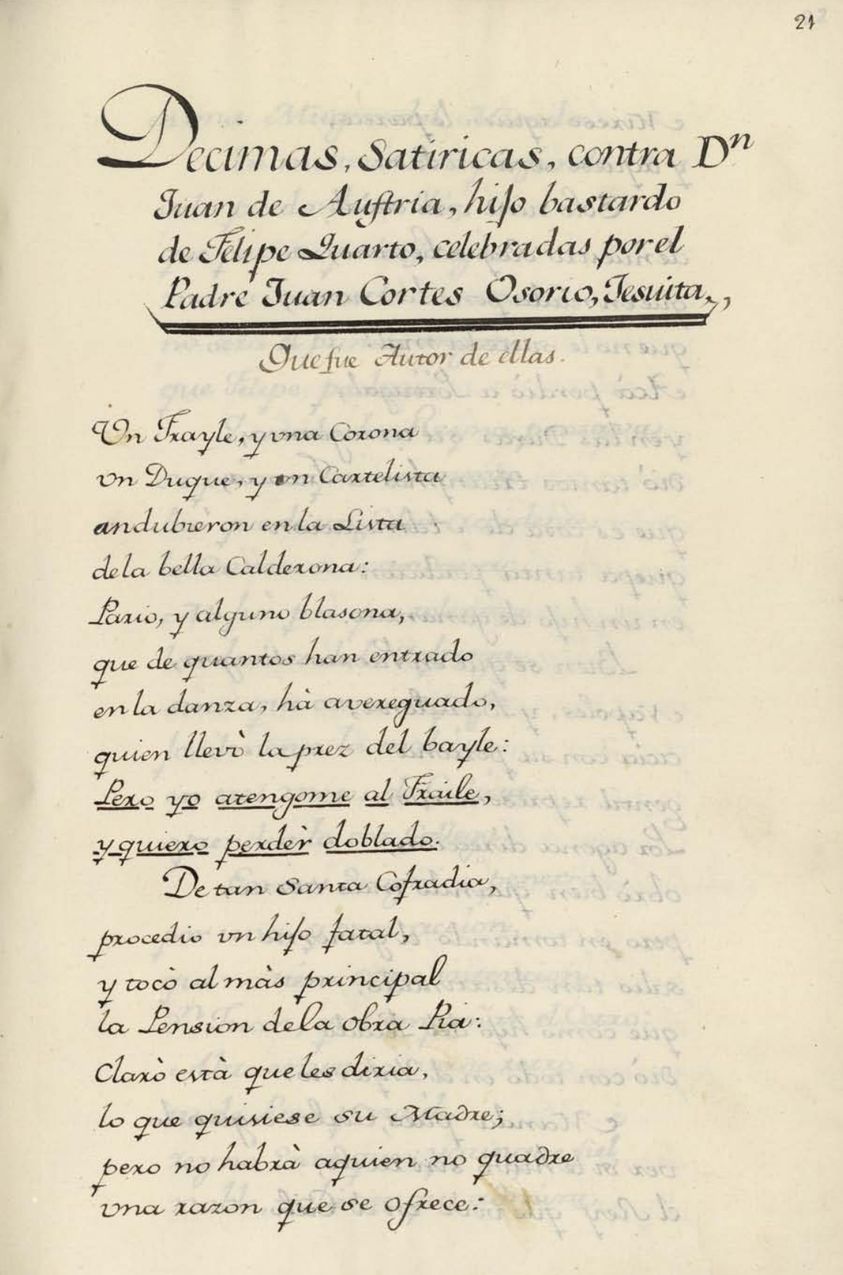 21
Decimas, Satiricas, contra Dⁿ
Juan de Austria, hijo bastardo
de Felipe Quarto, celebradas por el
Padre Juan Cortes Osorio, Jesuita,,
Que fue Autor de ellas.
Vn Frayle, y vna Corona
vn Duque, y vn Cartelista
andubieron en la Lista
de la bella Calderona:
Pario, y alguno blasona,
que de quantos han entrado
en la danza, hà avereguado,
quien llevò la prez del bayle:
Pero yo atengome al Fraile,
y quiero perdèr doblado.
De tan Santa Cofradia,
procedio vn hijo fatal,
y tocò al màs principal
la Pension de la obra Pia:
Clarò està que les diria,
lo que quisiese su Madre;
pero no habrà aquien no quadre
vna razon que se ofrece: